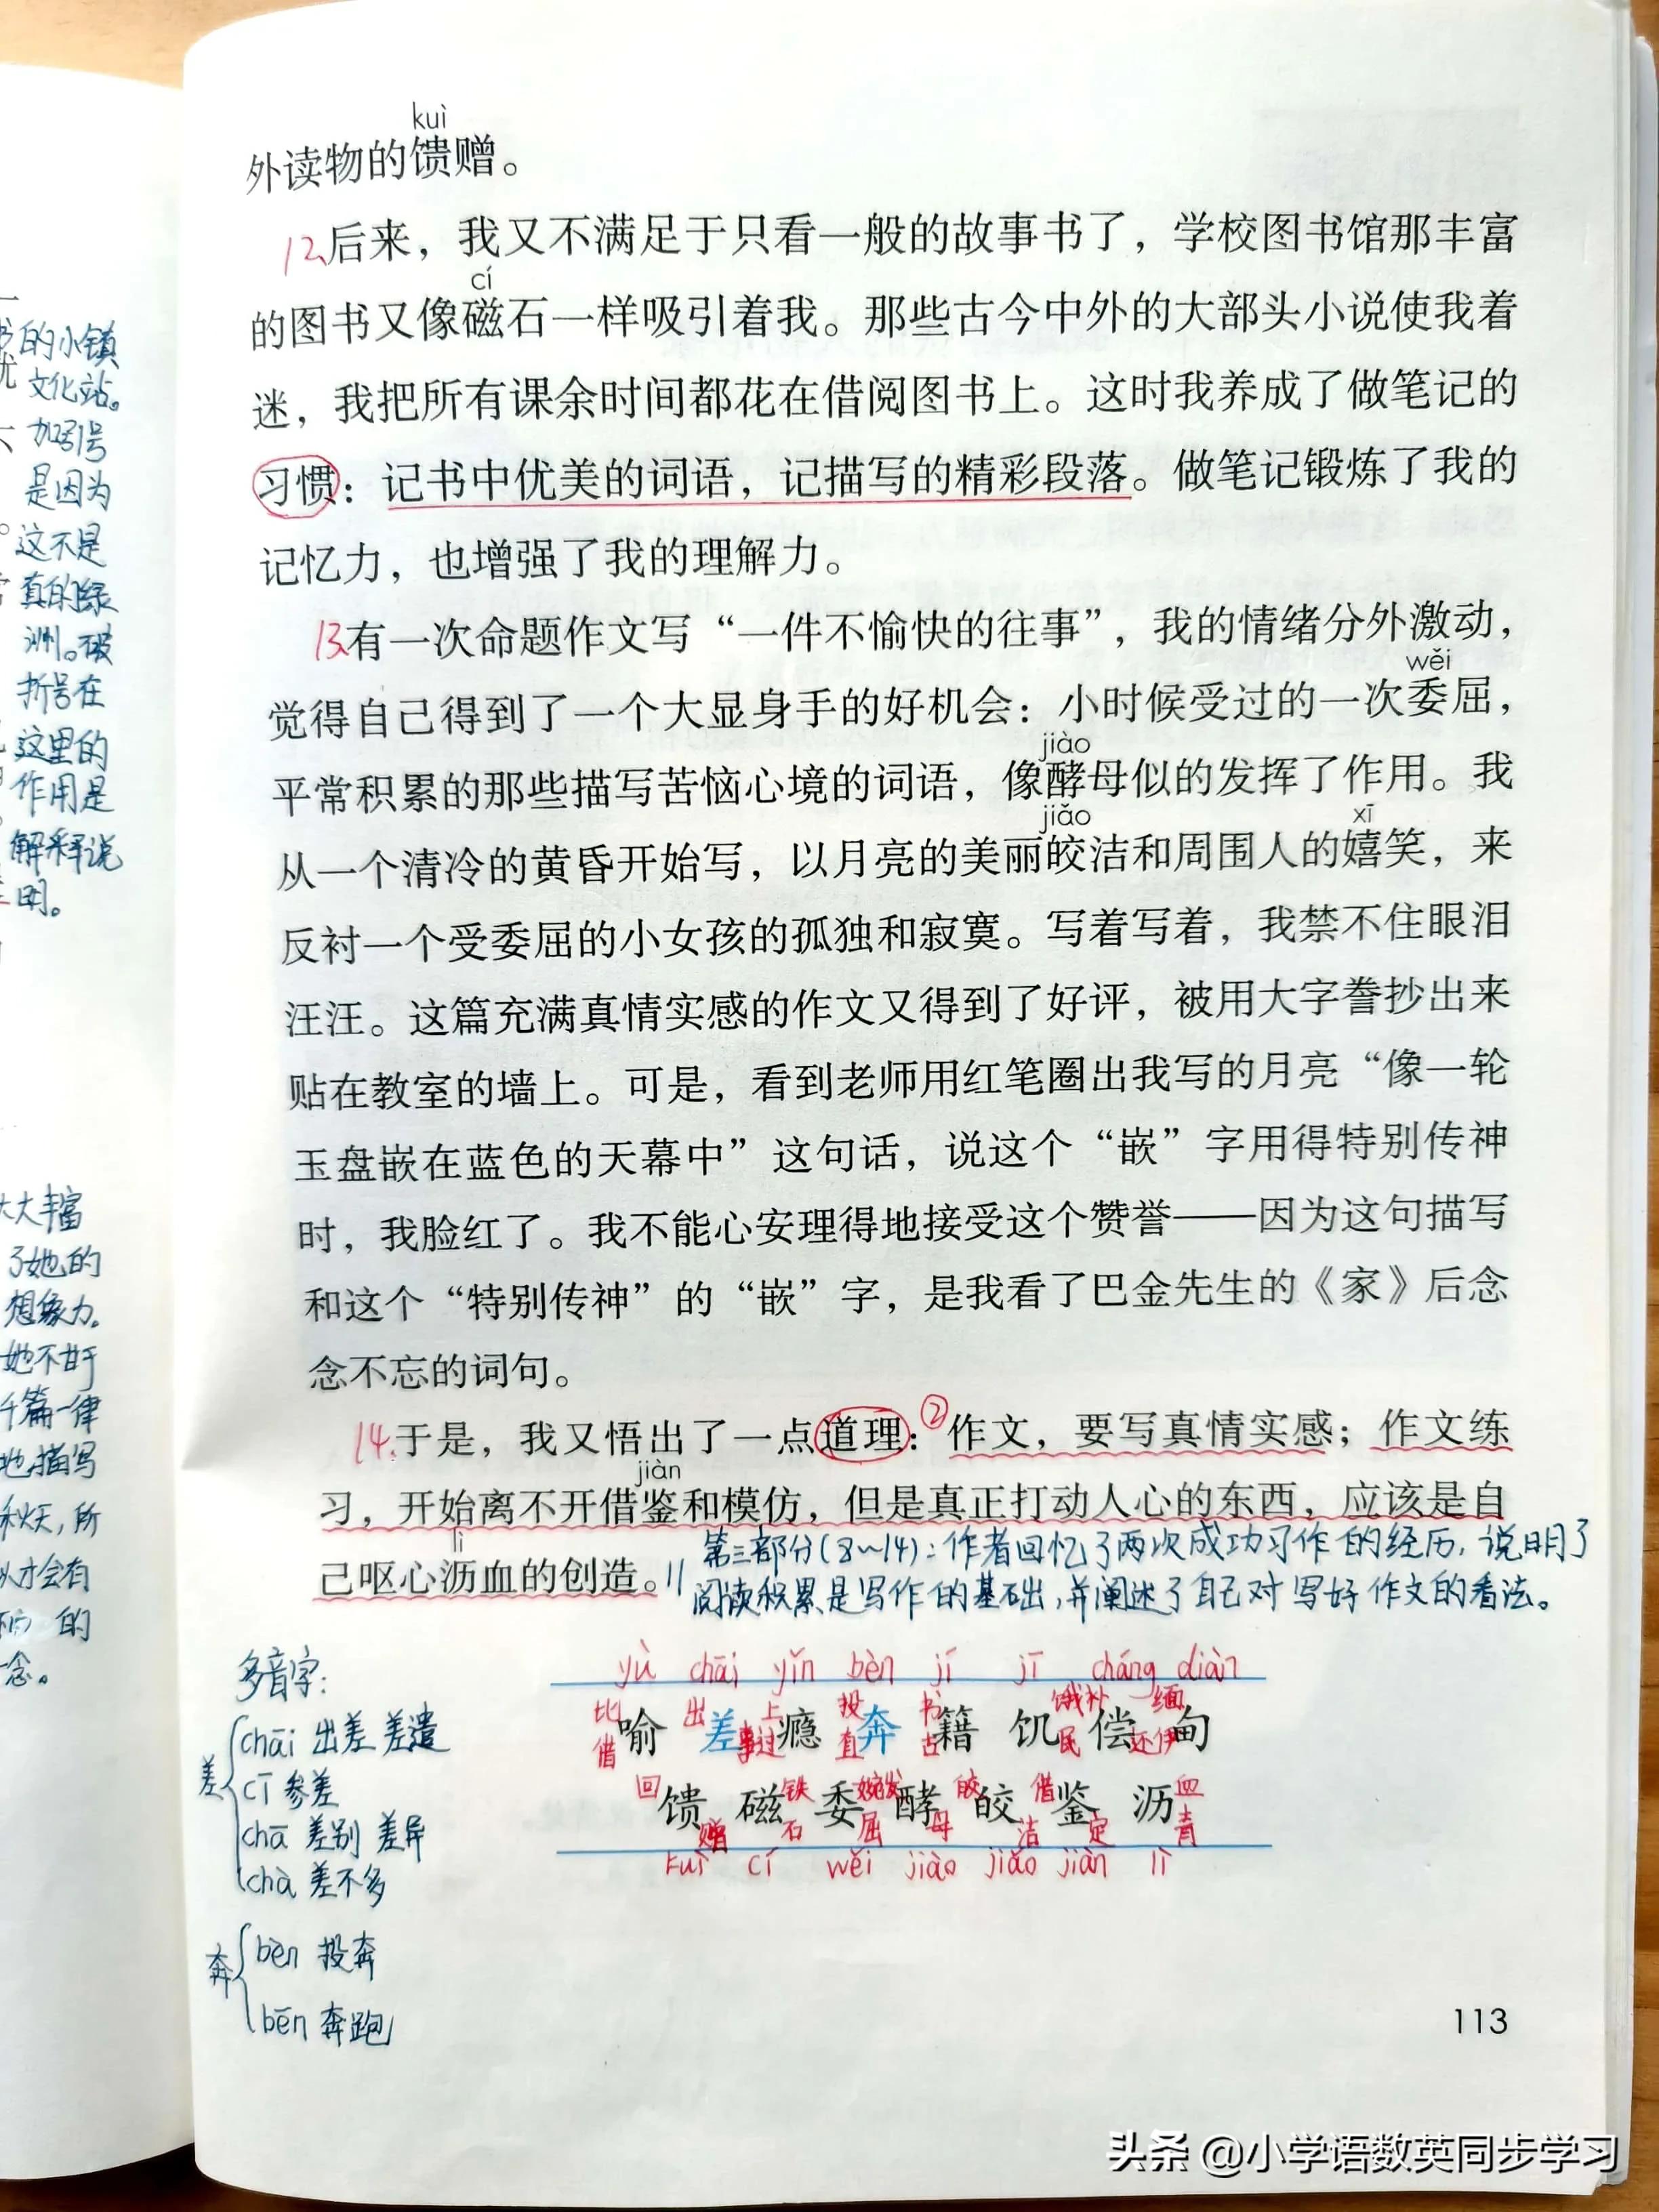 书的小镇
文化站。
加引号
是因为
这不是
真的绿
洲。破
折号在
这里的
作用是
解释说
明。
大大丰富
了她的
想象力。
她不甘于
千篇一律
地描写
秋天，所
以才会有
的
念。
kuì
外读物的馈赠。
12、后来，我又不满足于只看一般的故事书了，学校图书馆那丰富
cí
的图书又像磁石一样吸引着我。那些古今中外的大部头小说使我着
迷，我把所有课余时间都花在借阅图书上。这时我养成了做笔记的
习惯：记书中优美的词语，记描写的精彩段落。做笔记锻炼了我的
记忆力，也增强了我的理解力。
13、有一次命题作文写“一件不愉快的往事”，我的情绪分外激动，
wěi
觉得自己得到了一个大显身手的好机会：小时候受过的一次委屈，
jiào
平常积累的那些描写苦恼心境的词语，像酵母似的发挥了作用。我
jiǎo xī
从一个清冷的黄昏开始写，以月亮的美丽皎洁和周围人的嬉笑，来
反衬一个受委屈的小女孩的孤独和寂寞。写着写着，我禁不住眼泪
汪汪。这篇充满真情实感的作文又得到了好评，被用大字誊抄出来
贴在教室的墙上。可是，看到老师用红笔圈出我写的月亮“像一轮
玉盘嵌在蓝色的天幕中”这句话，说这个“嵌”字用得特别传神
时，我脸红了。我不能心安理得地接受这个赞誉——因为这句描写
和这个“特别传神”的“嵌”字，是我看了巴金先生的《家》后念
念不忘的词句。
14、于是，我又悟出了一点道理：②作文，要写真情实感；作文练
jiàn
习，开始离不开借鉴和模仿，但是真正打动人心的东西，应该是自
lì
己呕心沥血的创造。||
第三部分(8~14)：作者回忆了两次成功习作的经历，说明了
阅读积累是写作的基础，并阐述了自己对写好作文的看法。
多音字：
差
chāi 出差 差遣
cī 参差
chā 差别 差异
chà 差不多
奔
bèn 投奔
bēn 奔跑
yù chāi yǐn bèn jí jī cháng diàn
比 出 上 投 书 饿 补 缅
喻 差 瘾 奔 籍 饥 偿 甸
借 事 过 直 古 民 还 伊
回 铁 婉 发 皎 借 血
馈 磁 委 酵 皎 鉴 沥
赠 石 屈 母 洁 定 青
kuì cí wěi jiào jiǎo jiàn lì
113
头条 @小学语数英同步学习